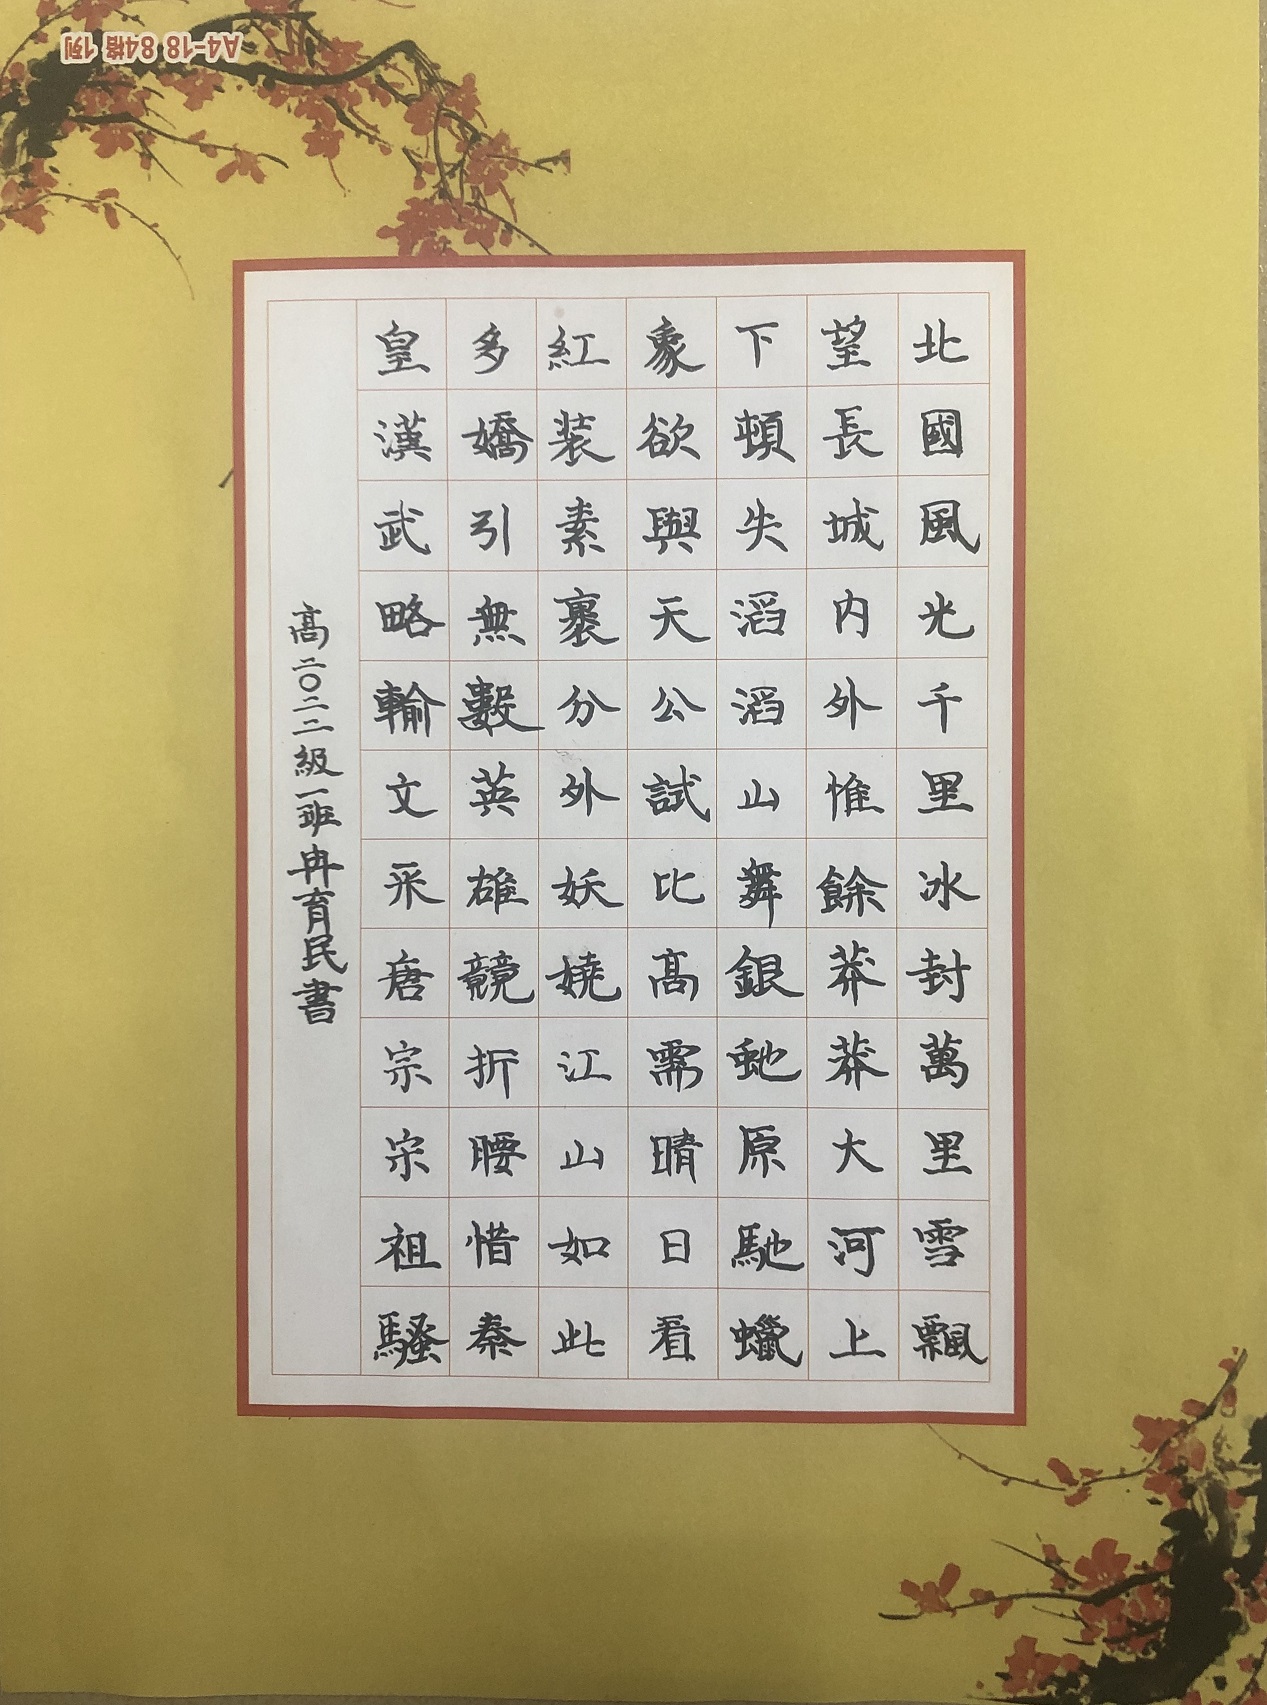 北國風光千里冰封萬里雪飄
望長城内外惟餘莽莽大河上
下頓失滔滔山舞銀虵原馳蠟
象欲與天公試比髙需晴日看
紅装素裹分外妖嬈江山如此
多嬌引無數英雄競折腰惜秦
皇漢武略輸文采唐宗宗祖騷
髙二〇二二級一班冉育民書
A4-18 84格 1列